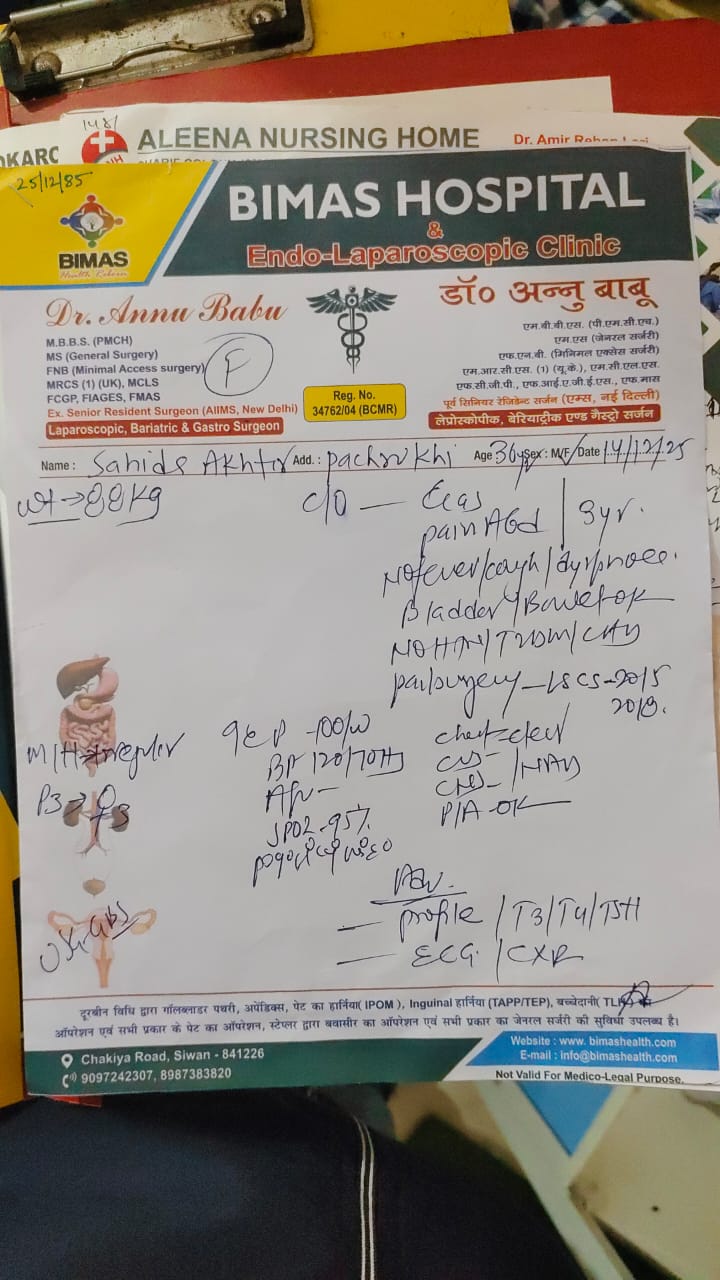 148/
OKARO
ALEENA NURSING HOME
Dr. Amir Rehan
25/12/85
BIMAS HOSPITAL
&
Endo-Laparoscopic Clinic
BIMAS
Health Reborn
Dr. Annu Babu
M.B.B.S. (PMCH)
MS (General Surgery)
FNB (Minimal Access surgery)
MRCS (1) (UK), MCLS
FCGP, FIAGES, FMAS
Ex. Senior Resident Surgeon (AIIMS, New Delhi)
Laparoscopic, Bariatric & Gastro Surgeon
F
Reg. No.
34762/04 (BCMR)
डॉ० अन्नु बाबू
एम.बी.बी.एस. (पी.एम.सी.एच.)
एम.एस (जेनरल सर्जरी)
एफ.एन.बी. (मिनिमल एक्सेस सर्जरी)
एम.आर.सी.एस. (1) (यू.के.), एम.सी.एल.एस.
एफ.सी.जी.पी., एफ.आई.ए.जी.ई.एस., एफ.मास
पूर्व सिनियर रेजिडेन्ट सर्जन (एम्स, नई दिल्ली)
लेप्रोस्कोपीक, बेरियाट्रीक एण्ड गैस्ट्रो सर्जन
Name : Sahida Akhtar Add. : pachrukhi Age : 36yr Sex : M/F Date 14/12/25
wt → 88 Kg
c/o —
pain Abd | 3yr.
No fever/cough/dyspnoea.
Bladder/Bowel-OK
NO HTN/T2DM/CAD
past surgery — LSCS-2015
2018.
M/H → regular
P3 →
USG
GCP
BP 120/70
Afeb -
SPO2 - 95%
chest - clear
CVS -
CNS - /NAD
P/A - OK
Adv.
— profile / T3/T4/TSH
— ECG / CXR
दूरबीन विधि द्वारा गॉलब्लाडर पथरी, अपेंडिक्स, पेट का हार्निया( IPOM ), Inguinal हार्निया (TAPP/TEP), बच्चेदानी(
ऑपरेशन एवं सभी प्रकार के पेट का ऑपरेशन, स्टेप्लर द्वारा बवासीर का ऑपरेशन एवं सभी प्रकार का जेनरल सर्जरी की सुविधा उपलब्ध है।
Chakiya Road, Siwan - 841226
9097242307, 8987383820
Website : www. bimashealth.com
E-mail : info@bimashealth.com
Not Valid For Medico-Legal Purpose.